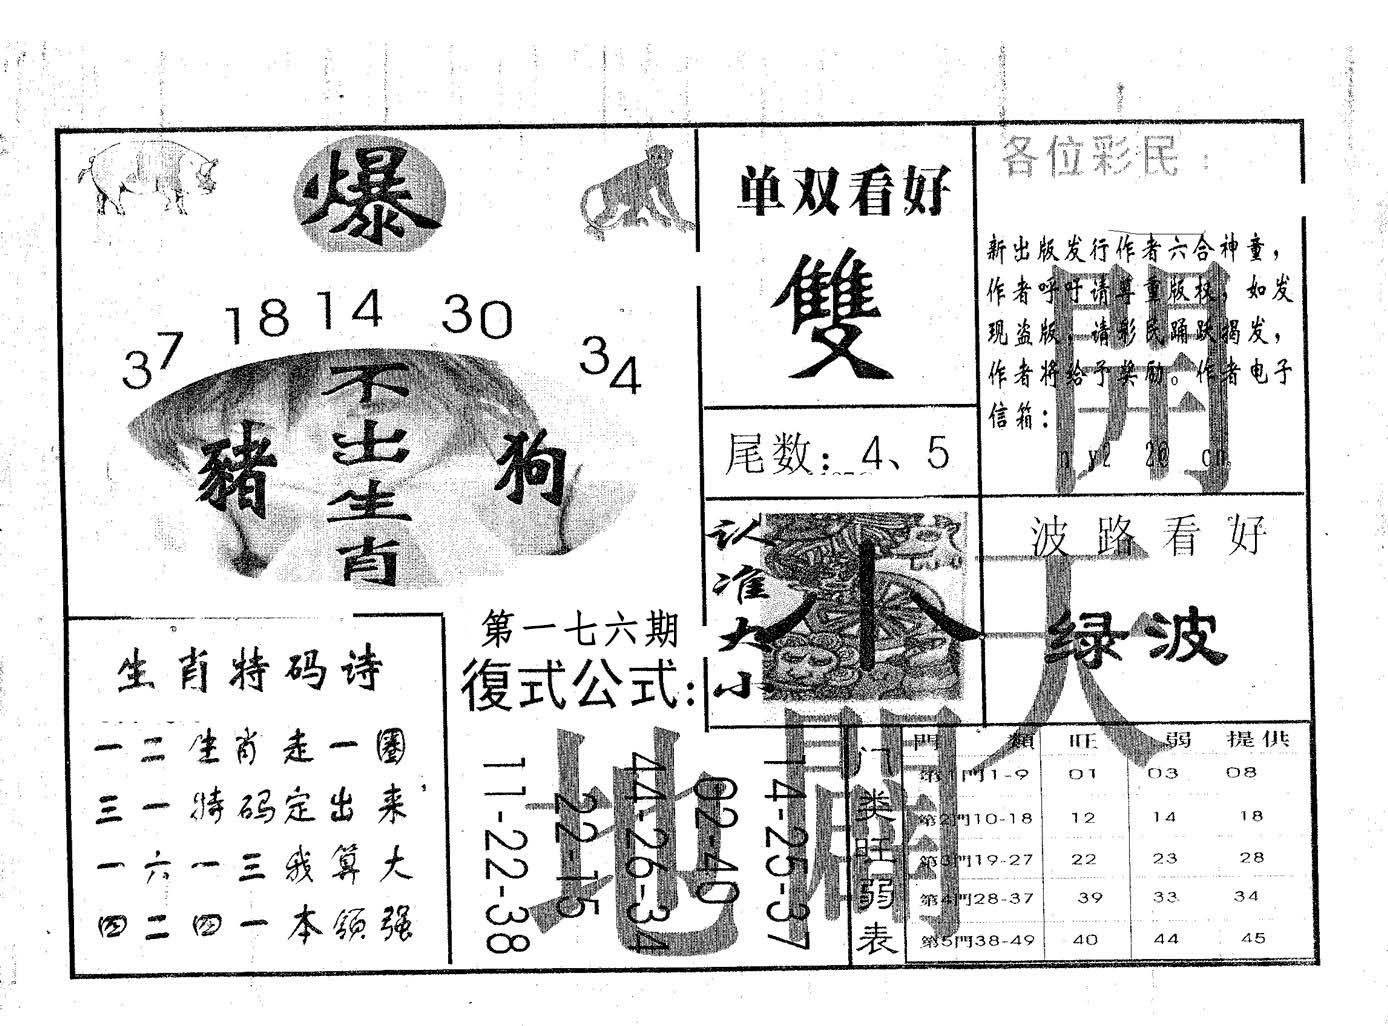 爆
37 18 14 30 34
不出生肖
豬 狗
单双看好
雙
尾数：4、5
各位彩民：
新出版发行作者六合神童，
作者呼吁请尊重版权，如发
现盗版，请彩民踊跃揭发，
作者将给予奖励。作者电子
信箱：
開
认准大小
小
波路看好
绿波
天
生肖特码诗
一二生肖走一圈
三一特码定出来
一六一三我算大
四二四一本领强
第一七六期
復式公式：
11-22-38
22-15
44-26-34
02-40
14-25-37
地
開
门类旺弱表
門類 旺 弱 提供
第1門1-9 01 03 08
第2門10-18 12 14 18
第3門19-27 22 23 28
第4門28-37 39 33 34
第5門38-49 40 44 45